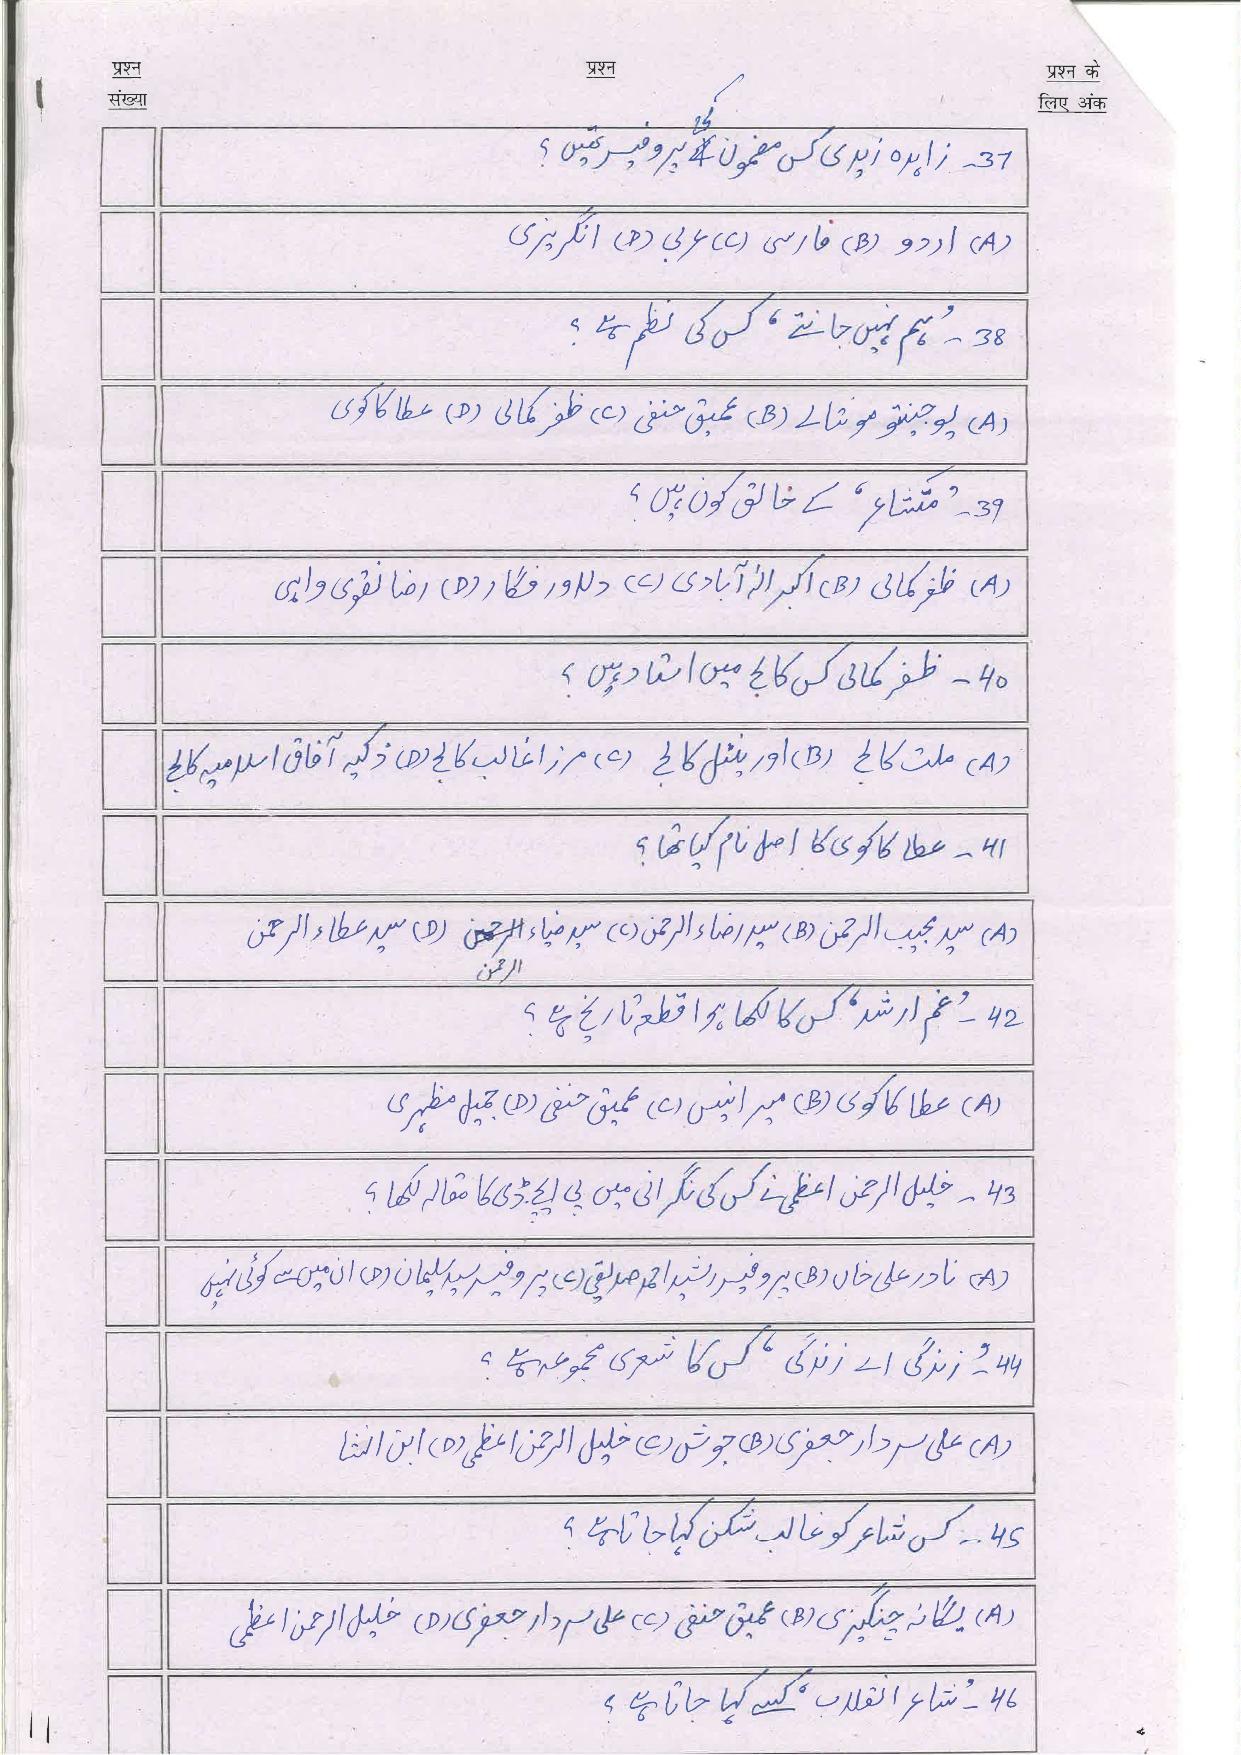 प्रश्न संख्या
प्रश्न
प्रश्न के लिए अंक
37- زاہدہ زیدی کس مضمون کی پروفیسر تھیں ؟
(A) اردو (B) فارسی (C) عربی (D) انگریزی
38- ’ہم نہیں جانتے‘ کس کی نظم ہے ؟
(A) یوجینیو مونتالے (B) عمیق حنفی (C) ظفر کمالی (D) عطا کاکوی
39- ’متشاعر‘ کے خالق کون ہیں ؟
(A) ظفر کمالی (B) اکبر الہ آبادی (C) دلاور فگار (D) رضا نقوی واہی
40- ظفر کمالی کس کالج میں استاد ہیں ؟
(A) ملت کالج (B) اورینٹل کالج (C) مرزا غالب کالج (D) ذکیہ آفاق اسلامیہ کالج
41- عطا کاکوی کا اصل نام کیا تھا ؟
(A) سید مجیب الرحمن (B) سید رضاء الرحمن (C) سید ضیاء الرحمن (D) سید عطاء الرحمن
42- ’غم ارشد‘ کس کا لکھا ہوا قطعہ تاریخ ہے ؟
(A) عطا کاکوی (B) میر انیس (C) عمیق حنفی (D) جمیل مظہری
43- خلیل الرحمن اعظمی نے کس کی نگرانی میں پی ایچ ڈی کا مقالہ لکھا ؟
(A) نادر علی خاں (B) پروفیسر رشید احمد صدیقی (C) پروفیسر سید سلیمان (D) ان میں سے کوئی نہیں
44- ’زندگی اے زندگی‘ کس کا شعری مجموعہ ہے ؟
(A) علی سردار جعفری (B) جوش (C) خلیل الرحمن اعظمی (D) ابن انشا
45- کس شاعر کو غالب شکن کہا جاتا ہے ؟
(A) یگانہ چنگیزی (B) عمیق حنفی (C) علی سردار جعفری (D) خلیل الرحمن اعظمی
46- ’شاعر انقلاب‘ کسے کہا جاتا ہے ؟
11